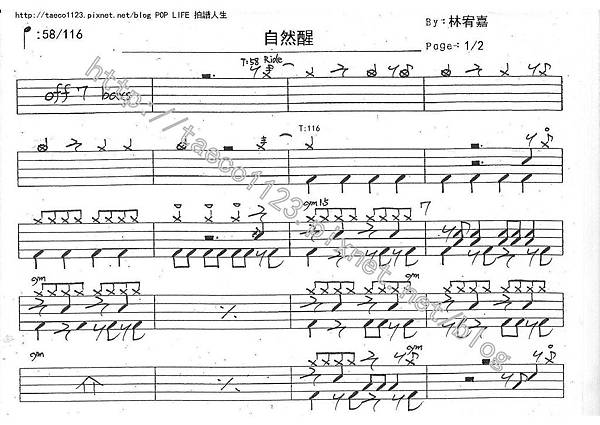 http://taeco1123.pixnet.net/blog POP LIFE 拍譜人生
:58/116
自然醒
By:林宥嘉
Page-: 1/2
T:58 Ride
off 7 bars
T:116
gm15
7
gm
gm
gm
gm
gm
http://taeco1123.pixnet.net/blog